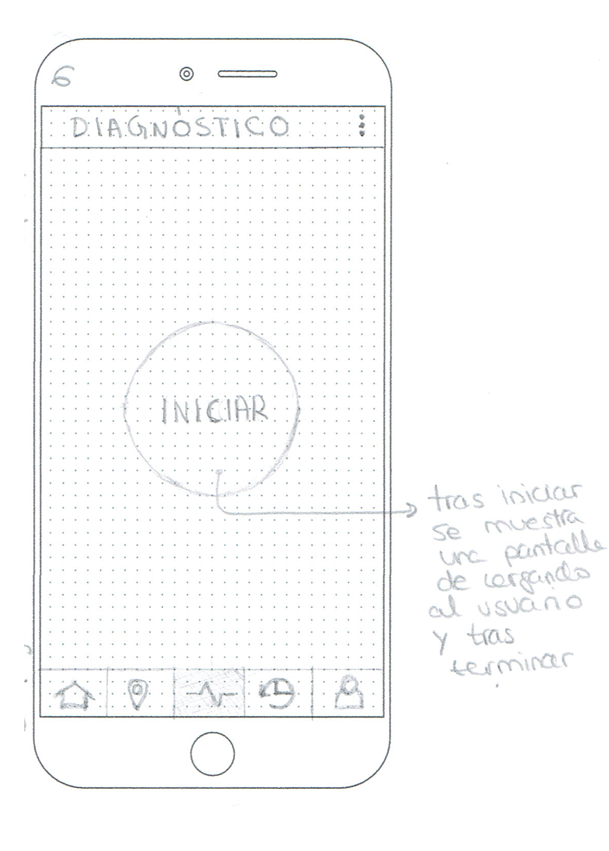 6
DIAGNÓSTICO
INICIAR
tras iniciar
se muestra
una pantalla
de cargando
al usuario
y tras
terminar